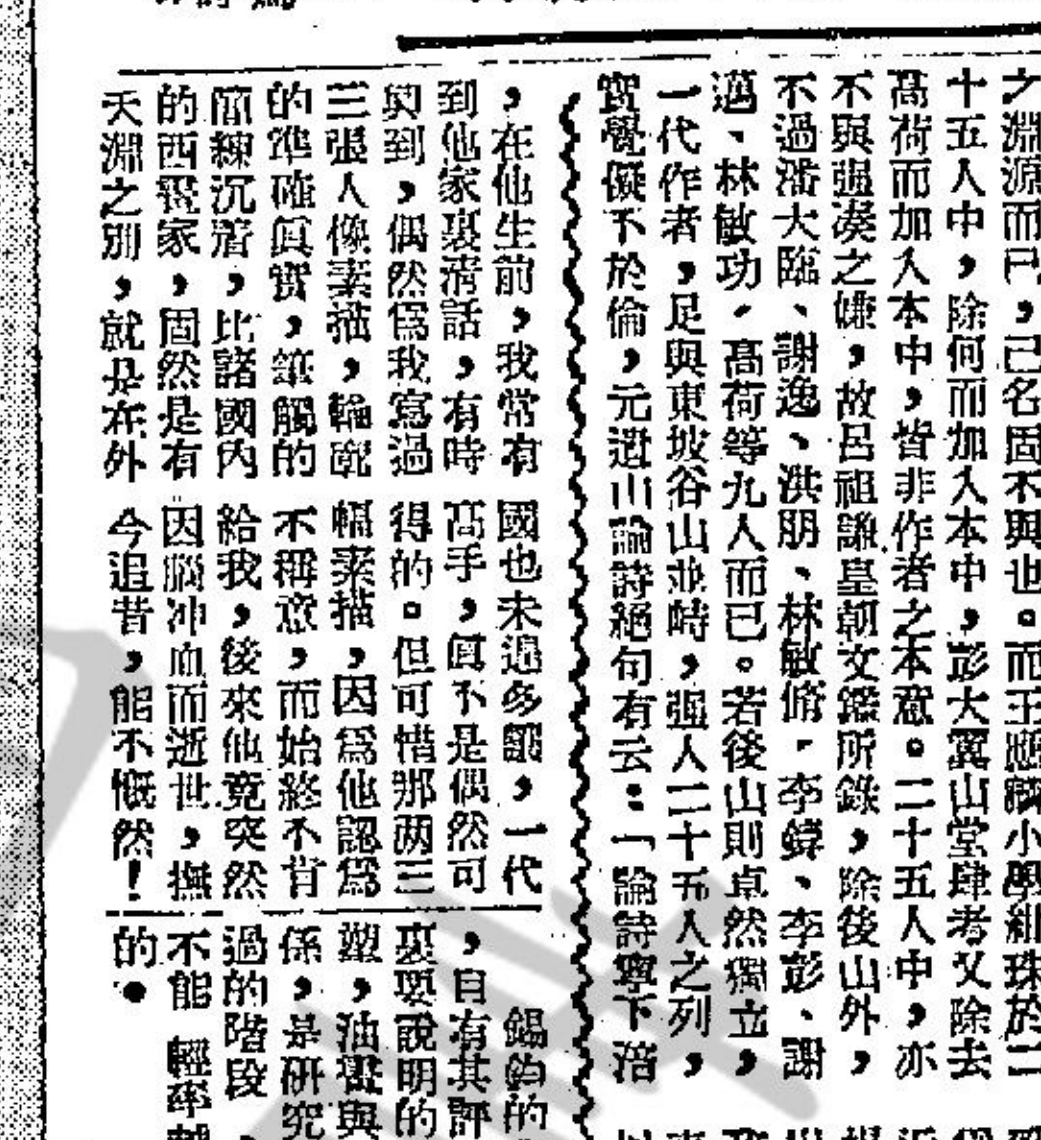 之淵源而已，己名固不與也。而王應麟小學紺珠於二
十五人中，除何而加入本中，彭大翼山堂肆考又除去
高荷而加入本中，皆非作者之本意。二十五人中，亦
不與强湊之嫌，故呂祖謙皇朝文鑑所錄，除後山外，
不過潘大臨、謝逸、洪朋、林敏脩、李錞、李彭、謝
邁、林敏功、高荷等九人而已。若後山則卓然獨立，
一代作者，足與東坡谷山並時，强人二十五人之列，
實覺儗不於倫，元遺山論詩絕句有云：「論詩寧下涪
，在他生前，我常有
到他家裏清話，有時
興到，偶然爲我寫過
三張人像素描，輪廓
的準確眞實，筆觸的
簡練沉着，比諸國內
的西畫家，固然是有
天淵之別，就是在外
國也未遑多讓，一代
高手，眞不是偶然可
得的。但可惜那两三
幅素描，因爲他認爲
不稱意，而始終不肯
給我，後來他竟突然
因腦冲血而逝世，撫
今追昔，能不慨然！
錫鈞的
，自有其評
裏要說明的
塑，油畫與
係，是研究
過的階段，
不能輕率
的●